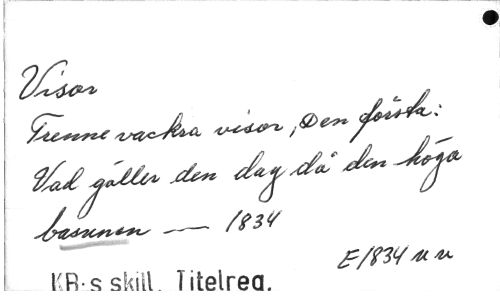 Visor
Trenne vackra visor, Den första:
Vad gäller den dag då den höga
basunen — 1834
E 1834 u u
KB:s skill. Titelreg.